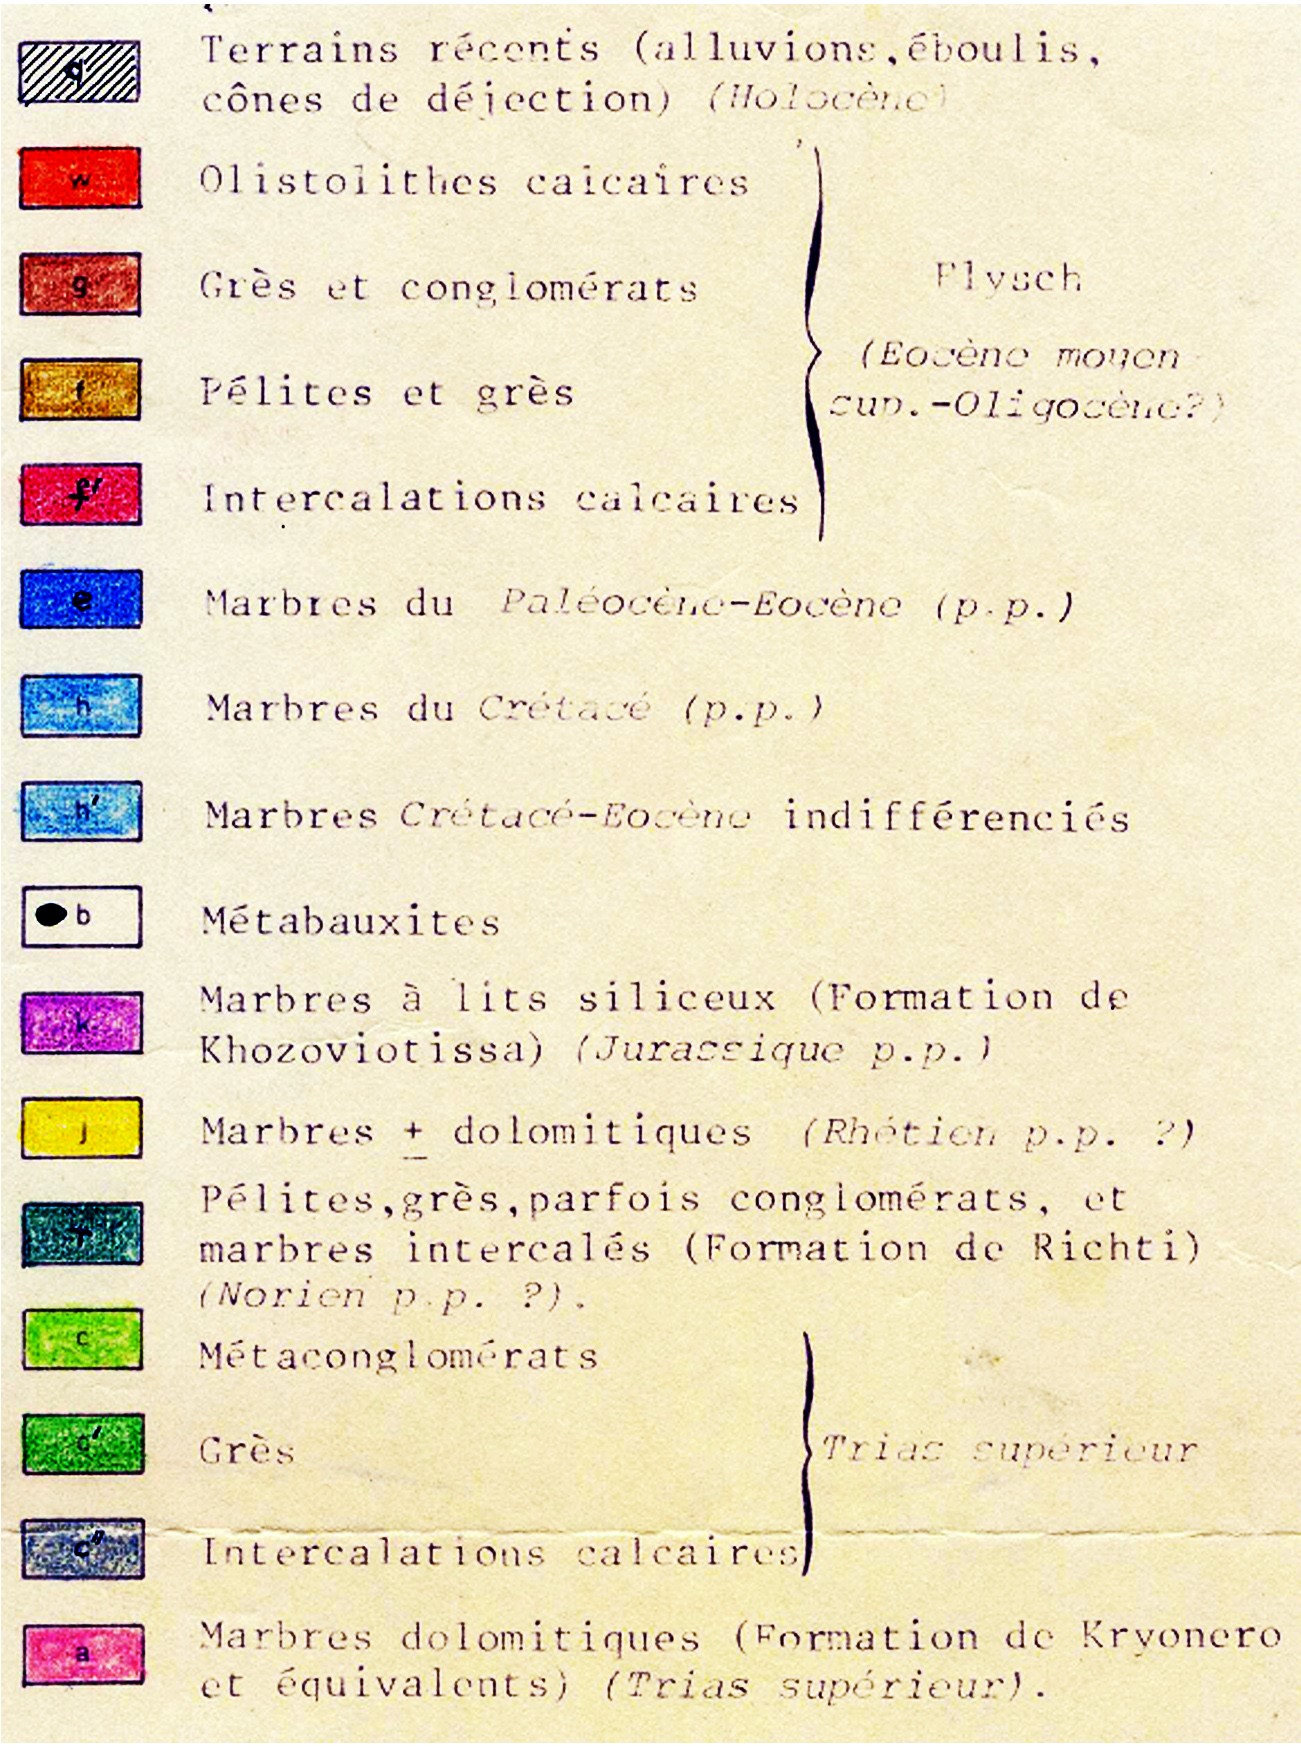 q Terrains récents (alluvions,éboulis,
cônes de déjection) (Holocène)
w Olistolithes calcaires
g Grès et conglomérats
Flysch
(Eocène moyen
sup.-Oligocène?)
f Pélites et grès
f' Intercalations calcaires
e Marbres du Paléocène-Eocène (p.p.)
h Marbres du Crétacé (p.p.)
h' Marbres Crétacé-Eocène indifférenciés
b Métabauxites
k Marbres à lits siliceux (Formation de
Khozoviotissa) (Jurassique p.p.)
j Marbres ± dolomitiques (Rhétien p.p. ?)
Pélites,grès,parfois conglomérats, et
marbres intercalés (Formation de Richti)
(Norien p.p. ?).
c Métaconglomérats
c' Grès
Trias supérieur
c" Intercalations calcaires
a Marbres dolomitiques (Formation de Kryonero
et équivalents) (Trias supérieur).